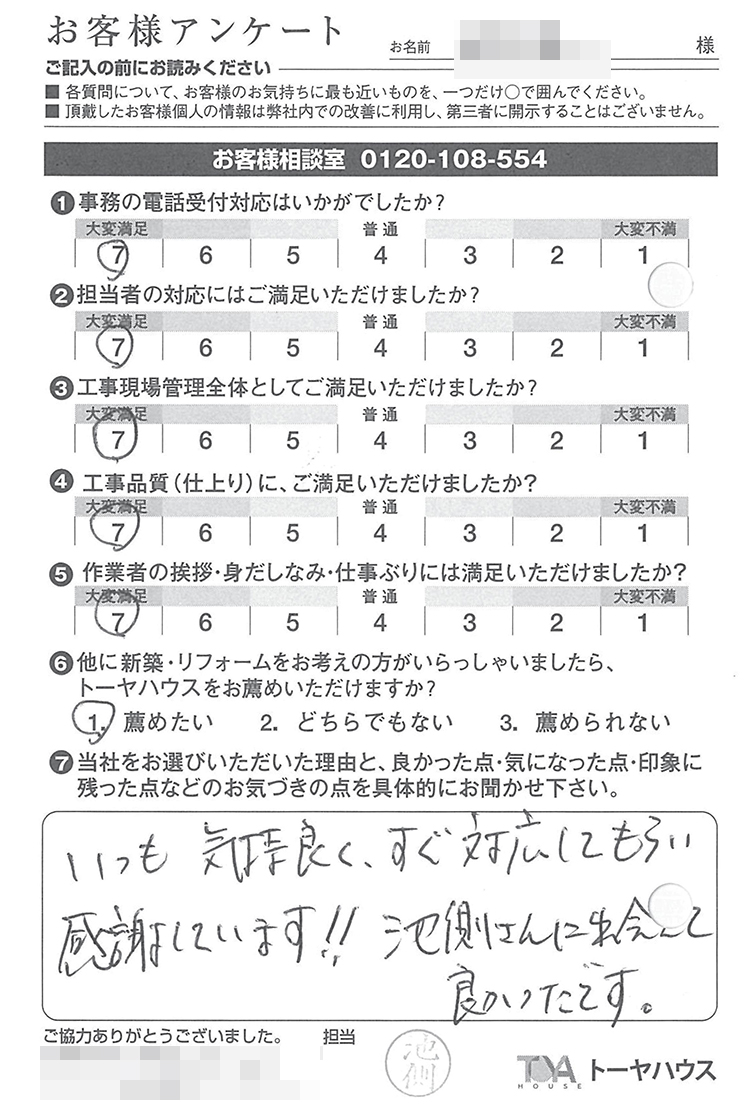 お客様アンケート
お名前 様
ご記入の前にお読みください
■ 各質問について、お客様のお気持ちに最も近いものを、一つだけ○で囲んでください。
■ 頂戴したお客様個人の情報は弊社内での改善に利用し、第三者に開示することはございません。
お客様相談室 0120-108-554
❶ 事務の電話受付対応はいかがでしたか?
大変満足 普通 大変不満
7 6 5 4 3 2 1
❷ 担当者の対応にはご満足いただけましたか?
大変満足 普通 大変不満
7 6 5 4 3 2 1
❸ 工事現場管理全体としてご満足いただけましたか?
大変満足 普通 大変不満
7 6 5 4 3 2 1
❹ 工事品質(仕上り)に、ご満足いただけましたか?
大変満足 普通 大変不満
7 6 5 4 3 2 1
❺ 作業者の挨拶・身だしなみ・仕事ぶりには満足いただけましたか?
大変満足 普通 大変不満
7 6 5 4 3 2 1
❻ 他に新築・リフォームをお考えの方がいらっしゃいましたら、
トーヤハウスをお薦めいただけますか?
1. 薦めたい 2. どちらでもない 3. 薦められない
❼ 当社をお選びいただいた理由と、良かった点・気になった点・印象に
残った点などのお気づきの点を具体的にお聞かせ下さい。
いつも 気持良く、すぐ 対応してもらい
感謝しています!! 池側さんに出会って
良かったです。
ご協力ありがとうございました。 担当 池側
TOYA HOUSE トーヤハウス